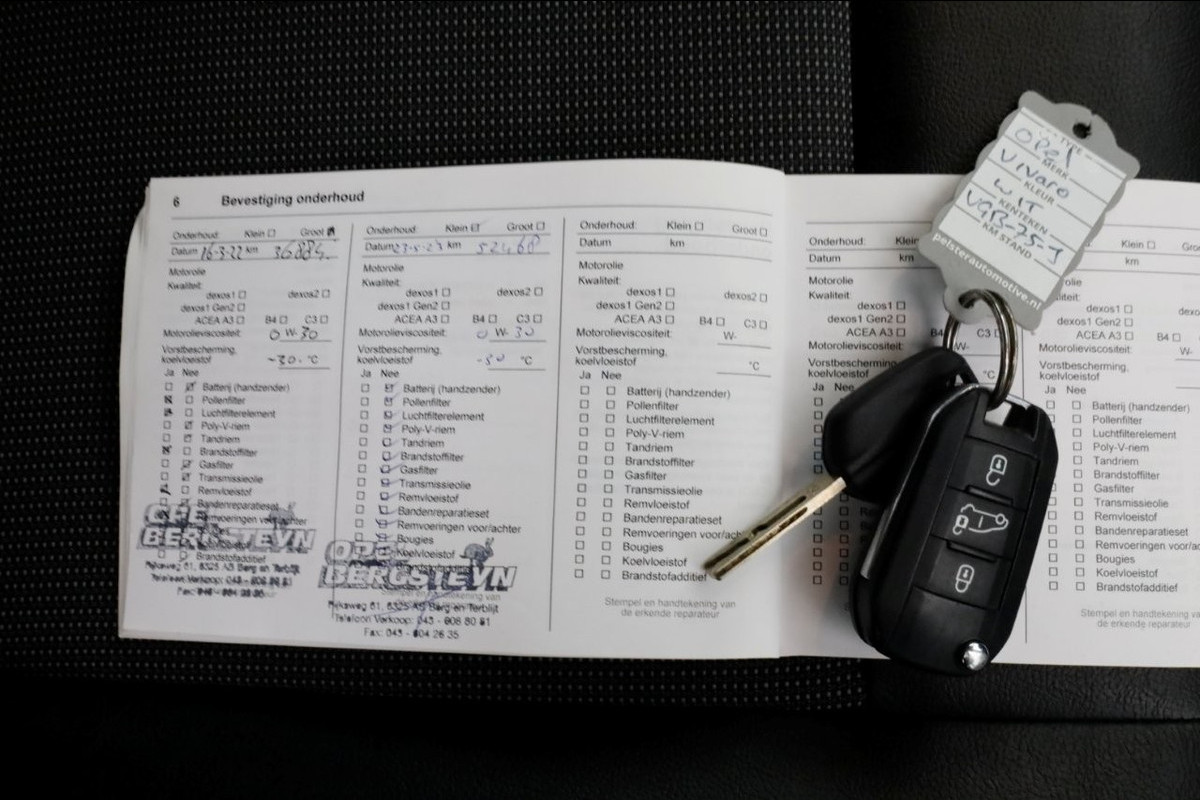 6 Bevestiging onderhoud
Onderhoud: Klein ☐ Groot ☒
Datum 16-3-22 km 36884
Motorolie
Kwaliteit:
dexos1 ☐ dexos2 ☐
dexos1 Gen2 ☐
ACEA A3 ☐ B4 ☐ C3 ☐
Motorolieviscositeit: 0 W- 30
Vorstbescherming,
koelvloeistof -30 °C
Ja Nee
Batterij (handzender)
Pollenfilter
Luchtfilterelement
Poly-V-riem
Tandriem
Brandstoffilter
Gasfilter
Transmissieolie
Remvloeistof
Bandenreparatieset
Remvoeringen voor/achter
BERGSTEYN
Brandstofadditief
Rijksweg 61, 6325 AS Berg en Terblijt
Telefoon Verkoop: 043 - 608 80 81
Onderhoud: Klein ☑ Groot ☐
Datum 23-5-23 km 52468
Motorolie
Kwaliteit:
dexos1 ☐ dexos2 ☐
dexos1 Gen2 ☐
ACEA A3 ☐ B4 ☐ C3 ☐
Motorolieviscositeit: 0 W- 30
Vorstbescherming,
koelvloeistof °C
Ja Nee
Batterij (handzender)
Pollenfilter
Luchtfilterelement
Poly-V-riem
Tandriem
Brandstoffilter
Gasfilter
Transmissieolie
Remvloeistof
Bandenreparatieset
Remvoeringen voor/achter
Bougies
Koelvloeistof
BERGSTEYN
Rijksweg 61, 6325 AS Berg en Terblijt
Telefoon Verkoop: 043 - 608 80 81
Fax: 043 - 604 26 35
Onderhoud: Klein ☐ Groot ☐
Datum km
Motorolie
Kwaliteit:
dexos1 ☐ dexos2 ☐
dexos1 Gen2 ☐
ACEA A3 ☐ B4 ☐ C3 ☐
Motorolieviscositeit: W-
Vorstbescherming,
koelvloeistof °C
Ja Nee
Batterij (handzender)
Pollenfilter
Luchtfilterelement
Poly-V-riem
Tandriem
Brandstoffilter
Gasfilter
Transmissieolie
Remvloeistof
Bandenreparatieset
Remvoeringen voor/ach
Bougies
Koelvloeistof
Brandstofadditief
Stempel en handtekening van
de erkende reparateur
Onderhoud: Klein
Datum km
Motorolie
Kwaliteit:
dexos1 ☐
dexos1 Gen2 ☐
ACEA A3 ☐ B4 C3 ☐
Motorolieviscositeit: W-
Vorstbescherming,
koelvloeistof °C
Ja Nee
TYPE
Opel
MERK
Vivaro
KLEUR
wit
KENTEKEN
VGB-75-J
KM STAND
pelsterautomotive.nl
Klein ☐ Groo
km
olie
liteit:
dexos1 ☐
dexos1 Gen2 ☐
ACEA A3 ☐ B4 ☐
Motorolieviscositeit: W-
Vorstbescherming,
koelvloeistof
Ja Nee
Batterij (handzender)
Pollenfilter
Luchtfilterelement
Poly-V-riem
Tandriem
Brandstoffilter
Gasfilter
Transmissieolie
Remvloeistof
Bandenreparatieset
Remvoeringen voor/ac
Bougies
Koelvloeistof
Brandstofadditief
Stempel en handtekening va
de erkende reparateur